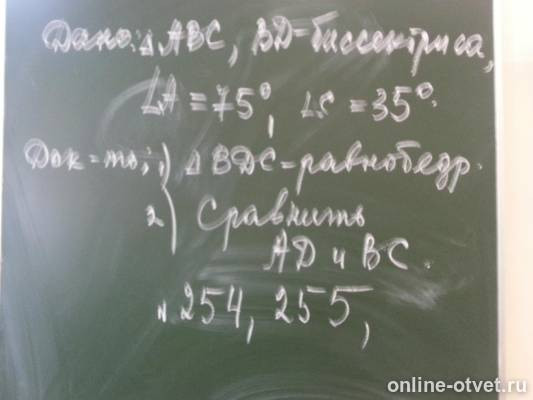 Дано: △ABC, BD-биссектриса,
∠A = 75°, ∠C = 35°.
Док-ть: 1) △BDC-равнобедр.
2) Сравнить
AD и BC.
N 254, 255,
online-otvet.ru